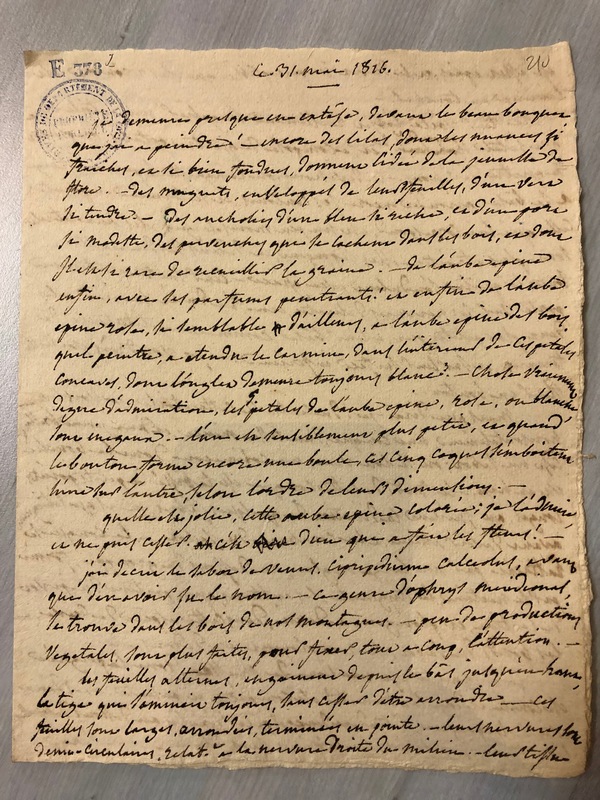 E 378 2
ce 31. mai 1816.
210
je demeure presque en extase, devant le beau bouquet
que j'ai a peindre! - encore des lilas, dont les nuances si
fraiches, et si bien fondues, donnent l'idée de la jeunesse de
flore. - des muguets, enveloppés de leurs feuilles, d'un vert
si tendre. - des ancholies d'un bleu si riche, et d'un port
si modeste, des pervenches qui se cachent dans les bois, et dont
il est si rare de recueillir la graine. - de l'aube epine
enfin, avec ses parfums penetrants! et enfin de l'aube
epine rose, si semblable d'ailleurs, a l'aube epine des bois.
quel peintre, a etendu le carmin, dans l'intérieur de ces petales
concaves, dont l'onglet demeure toujours blanc? - chose vraiment
digne d'admiration, les petales de l'aube epine, rose, ou blanche
sont inegaux. - l'un est sensiblement plus petit, et quand
le bouton forme encore une boule, ces cinq coques s'emboitent
l'une sur l'autre, selon l'ordre de leurs dimentions. -
qu'elle est jolie, cette aube epine colorée; je l'admire
et ne puis cesser dieu qui a fait les fleurs! -
j'ai decrit le sabot de venus, cipripedium calceolus, avant
que d'en avoir su le nom. - ce genre d'ophrys meridional,
se trouve dans les bois de nos montagnes. - peu de productions
vegetales, sont plus faites, pour fixer tout a coup, l'attention. -
les feuilles alternes, engainent depuis le bas jusqu'en haut,
la tige qui s'amincit toujours, sans cesser d'être arrondie - ces
feuilles sont larges, arrondies, terminées en pointe. - leurs nervures sont
demi-circulaires, relat.t a la nervure droite du milieu. - leur tissu